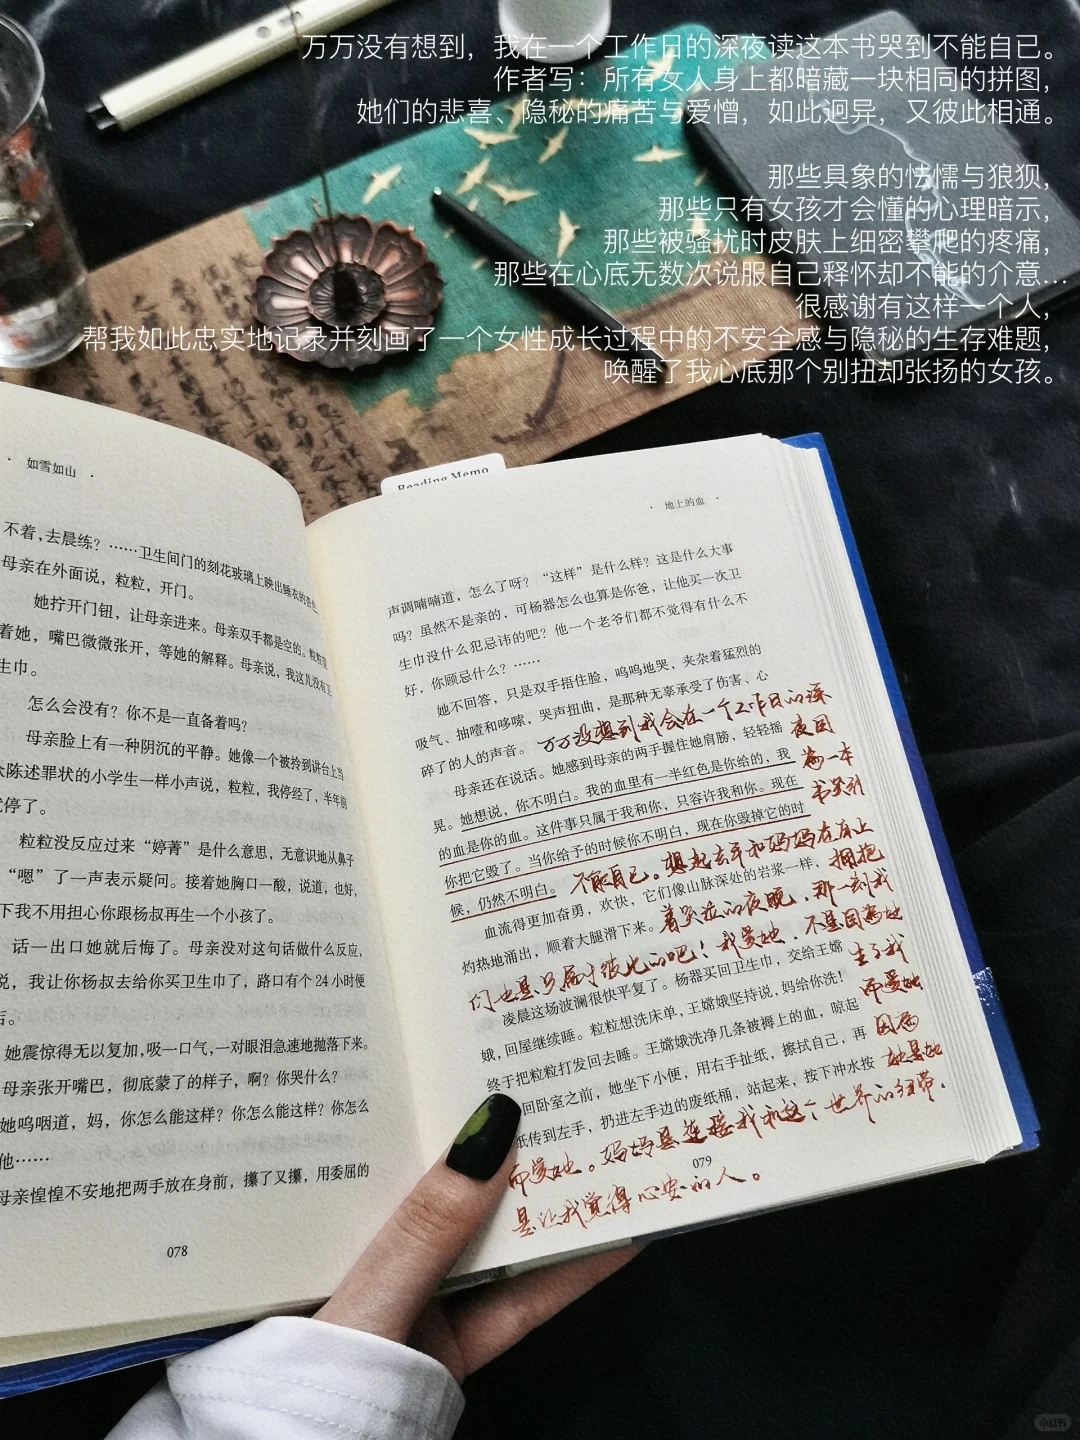 万万没有想到，我在一个工作日的深夜读这本书哭到不能自已。
作者写：所有女人身上都暗藏一块相同的拼图，
她们的悲喜、隐秘的痛苦与爱憎，如此迥异，又彼此相通。
那些具象的怯懦与狼狈，
那些只有女孩才会懂的心理暗示，
那些被骚扰时皮肤上细密攀爬的疼痛，
那些在心底无数次说服自己释怀却不能的介意…
很感谢有这样一个人，
帮我如此忠实地记录并刻画了一个女性成长过程中的不安全感与隐秘的生存难题，
唤醒了我心底那个别扭却张扬的女孩。
· 如雪如山 ·
不着，去晨练？……卫生间门的刻花玻璃上映出睡衣的杏色
母亲在外面说，粒粒，开门。
她拧开门钮，让母亲进来。母亲双手都是空的。粒粒望
着她，嘴巴微微张开，等她的解释。母亲说，我这儿没有卫
生巾。
怎么会没有？你不是一直备着吗？
母亲脸上有一种阴沉的平静。她像一个被拎到讲台上当
众陈述罪状的小学生一样小声说，粒粒，我停经了，半年前
就停了。
粒粒没反应过来“婷菁”是什么意思，无意识地从鼻子
“嗯”了一声表示疑问。接着她胸口一酸，说道，也好，
下我不用担心你跟杨叔再生一个小孩了。
话一出口她就后悔了。母亲没对这句话做什么反应，
说，我让你杨叔去给你买卫生巾了，路口有个24小时便
店。
她震惊得无以复加，吸一口气，一对眼泪急速地抛落下来。
母亲张开嘴巴，彻底蒙了的样子，啊？你哭什么？
她呜咽道，妈，你怎么能这样？你怎么能这样？你怎么
他……
母亲惶惶不安地把两手放在身前，攥了又攥，用委屈的
078
Reading Memo
· 地上的血 ·
声调喃喃道，怎么了呀？“这样”是什么样？这是什么大事
吗？虽然不是亲的，可杨器怎么也算是你爸，让他买一次卫
生巾没什么犯忌讳的吧？他一个老爷们都不觉得有什么不
好，你顾忌什么？……
她不回答，只是双手捂住脸，呜呜地哭，夹杂着猛烈的
吸气、抽噎和哆嗦，哭声扭曲，是那种无辜承受了伤害、心
碎了的人的声音。
万万没想到我会在一个工作日的深
夜因
母亲还在说话。她感到母亲的两手握住她肩膀，轻轻摇
为一本
晃。她想说，你不明白。我的血里有一半红色是你给的，我
书哭到
的血是你的血。这件事只属于我和你，只容许我和你。现在
你把它毁了。当你给予的时候你不明白，现在你毁掉它的时
候，仍然不明白。
不能自已。想起去年和妈妈在床上
拥抱
血流得更加奋勇，欢快，它们像山脉深处的岩浆一样，
灼热地涌出，顺着大腿滑下来。
着哭泣的夜晚，那一刻我
们也是只属于彼此的吧！我爱她，不是因为她
生了我
凌晨这场波澜很快平复了。杨器买回卫生巾，交给王嫦
而爱她
娥，回屋继续睡。粒粒想洗床单，王嫦娥坚持说，妈给你洗！
因为
终于把粒粒打发回去睡。王嫦娥洗净几条被褥上的血，晾起
她是她
回卧室之前，她坐下小便，用右手扯纸，擦拭自己，再
纸传到左手，扔进左手边的废纸桶，站起来，按下冲水按
而爱她。妈妈是连接我和这个世界的纽带，
079
是让我觉得心安的人。
小红书